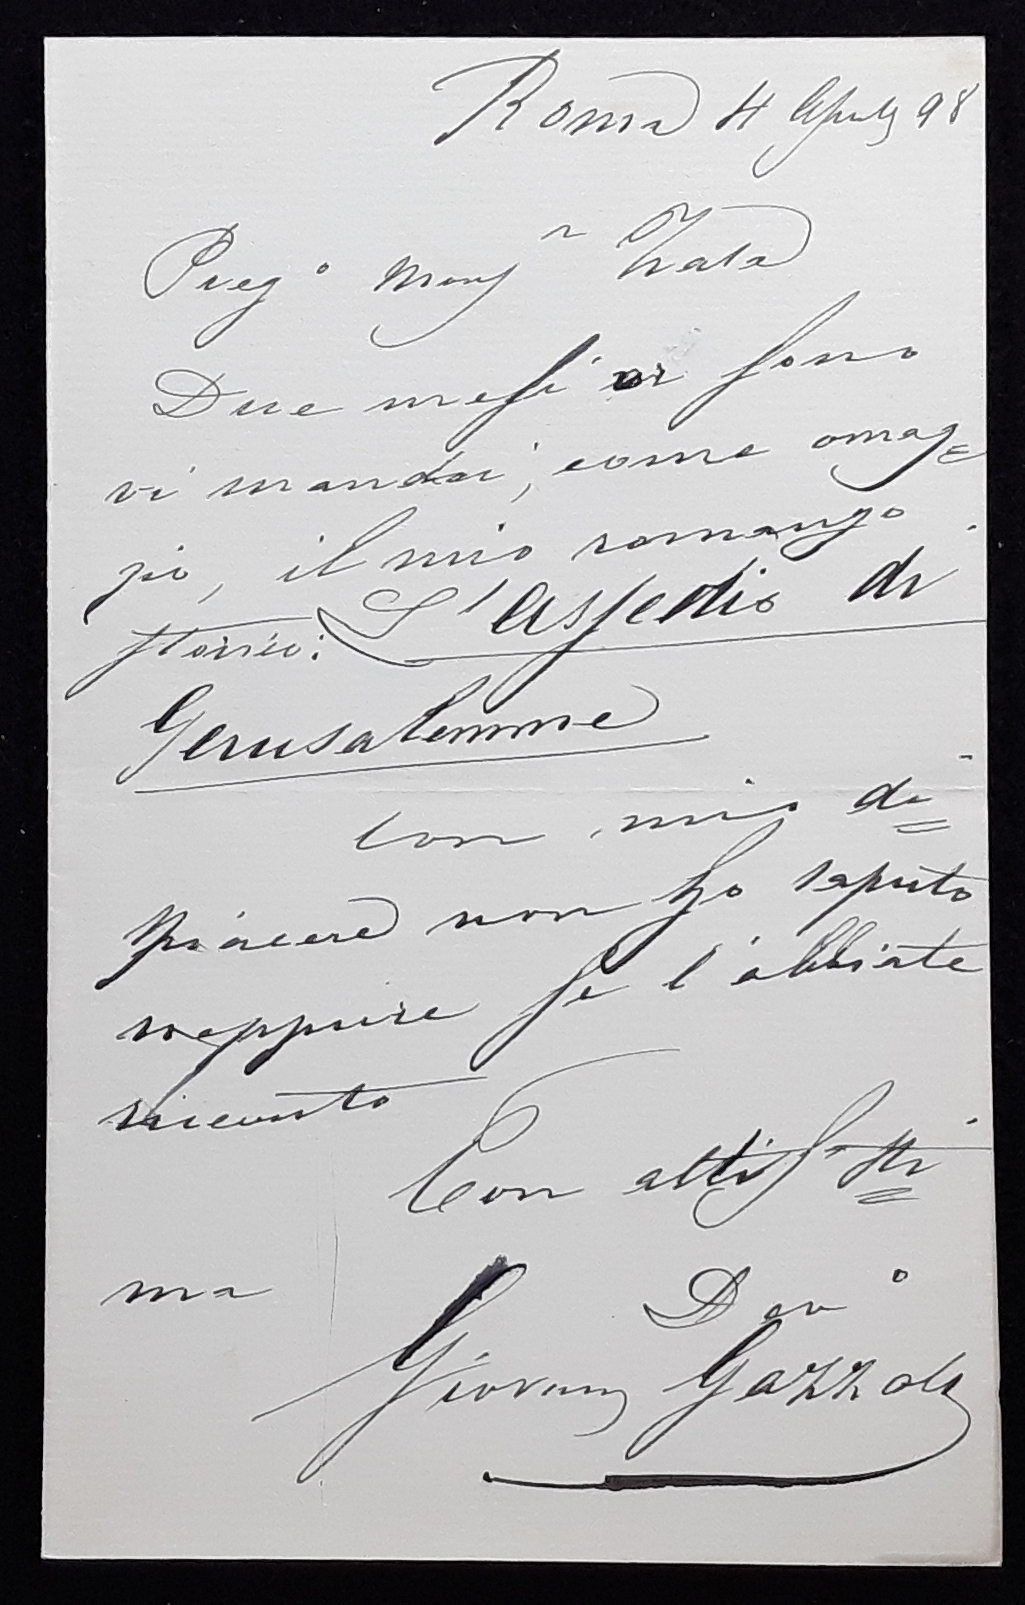 Roma 4 Aprile 98
Preg.o Mong.r Zala
Due mesi or sono
vi mandai, come omag=
gio, il mio romanzo
storico: L'Assedio di
Gerusalemme.
Con mio di=
spiacere non ho saputo
neppure se l'abbiate
ricevuto
Con attis sti=
ma Dev.o
Giovanni Gazzola